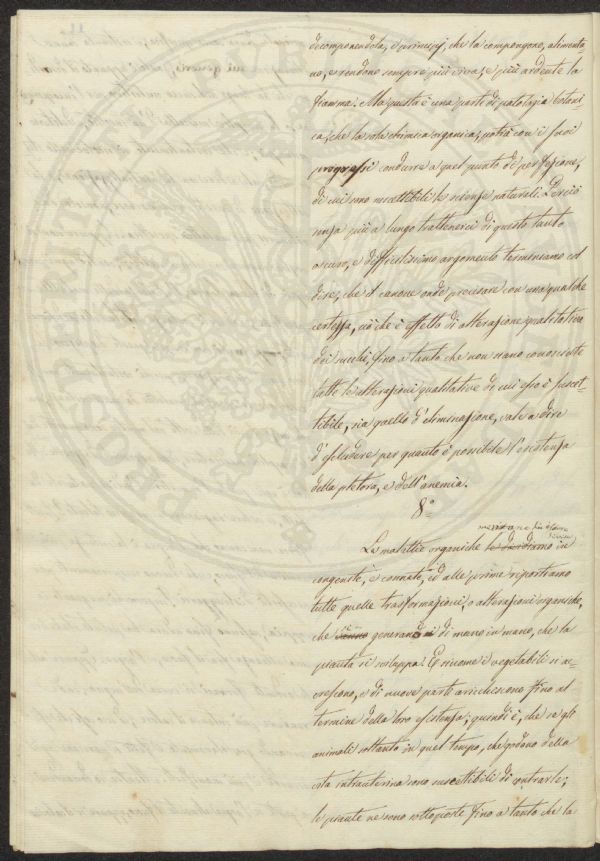 decomponendola, i principj, che la compongono, alimenta
no, e rendono sempre più viva, e più ardente la
fiamma. Ma questa è una parte di patologia botani
ca, che la sola chimica organica, potrà con i suoi
progressi condurre a quel punto di perfezione,
di cui sono suscettibili le scienze naturali. Perciò
senza più a lungo trattenerci di questo tanto
oscuro, e difficilissimo argomento terminiamo col
dire, che il canone onde precisare con una qualche
certezza, ciò che è effetto di alterazione qualitativa
dei succhi, fino a tanto che non siano conosciute
tutte le alterazioni qualitative di cui esso è suscet-
tibile, sia quello d'eliminazione, vale a dire
d'escludere per quanto è possibile l'esistenza
della pletora, e dell'anemia.
8°
meritano
Le malattie organiche le dividiamo in
congenite, e connate, ed alle prime riportiamo
tutte quelle trasformazioni, o alterazioni organiche,
che generano di mano in mano, che la
pianta si sviluppa. E siccome i vegetabili si ac-
crescono, e di nuove parti arricchiscono fino al
termine della loro esistenza; quindi è, che se gli
animali soltanto in quel tempo, che godono della
vita intrauterina sono suscettibili di contrarle;
le piante ne sono sottoposte fino a tanto che la